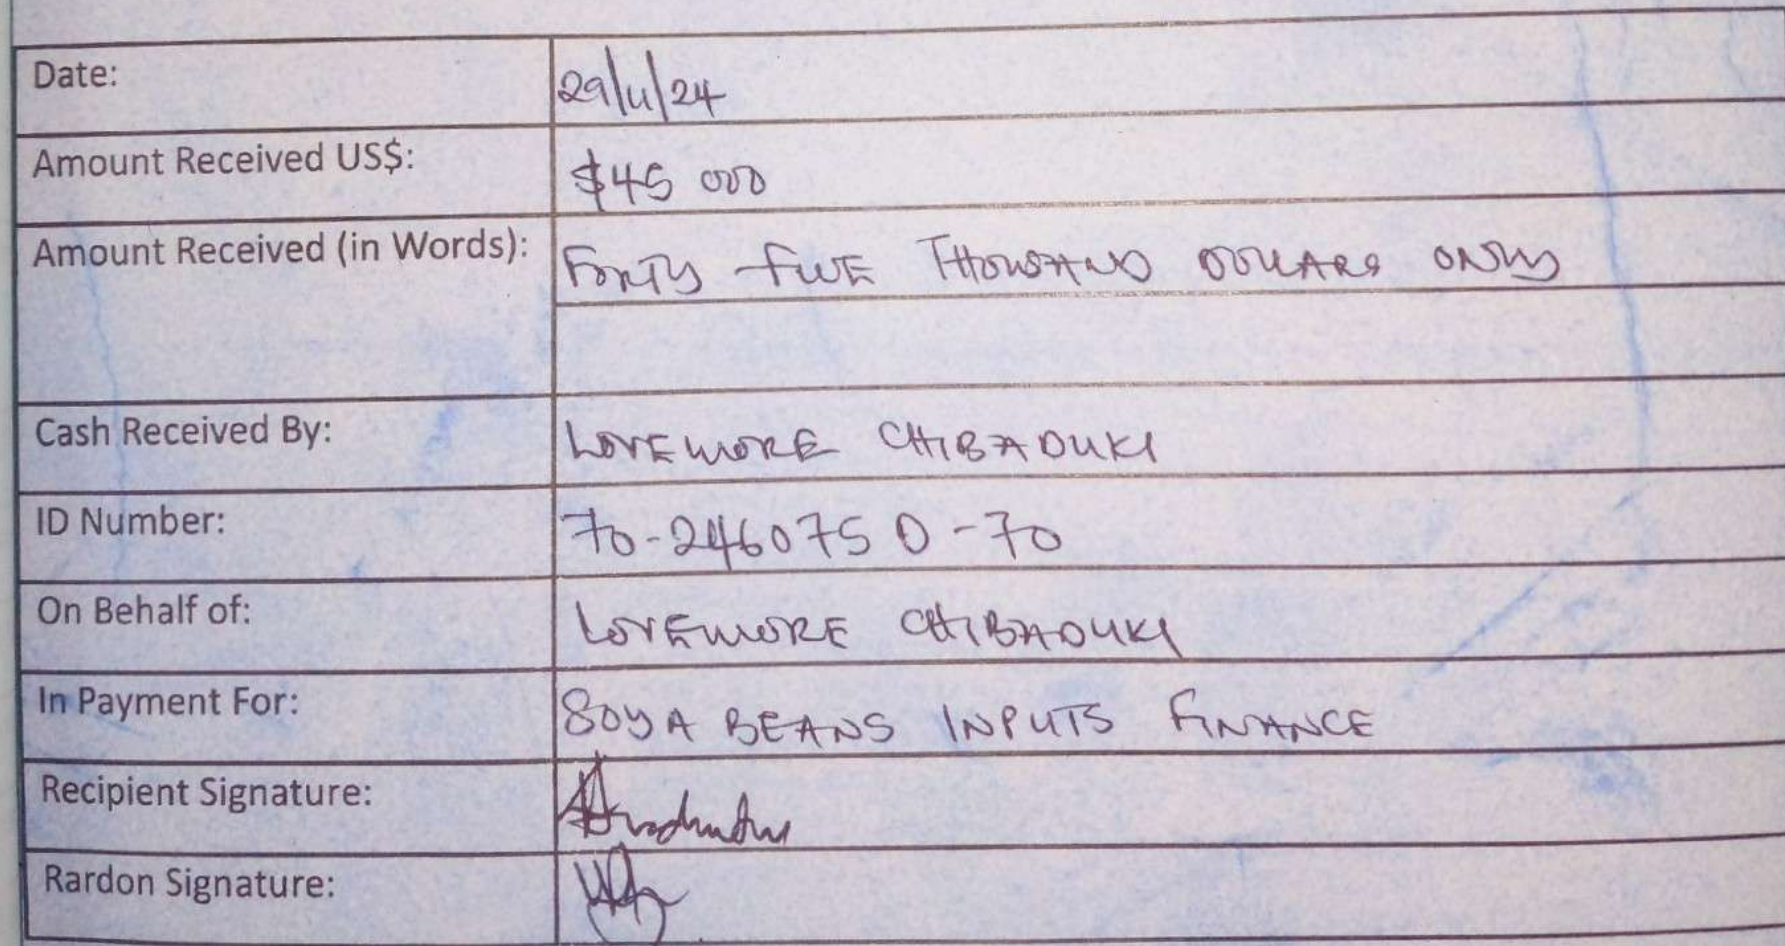 Date: 29/11/24
Amount Received US$: $45 000
Amount Received (in Words): FORTY FIVE THOUSAND DOLLARS ONLY
Cash Received By: LOVEMORE CHIBADUKI
ID Number: 70-246075 D-70
On Behalf of: LOVEMORE CHIBADUKI
In Payment For: SOYA BEANS INPUTS FINANCE
Recipient Signature:
Rardon Signature: